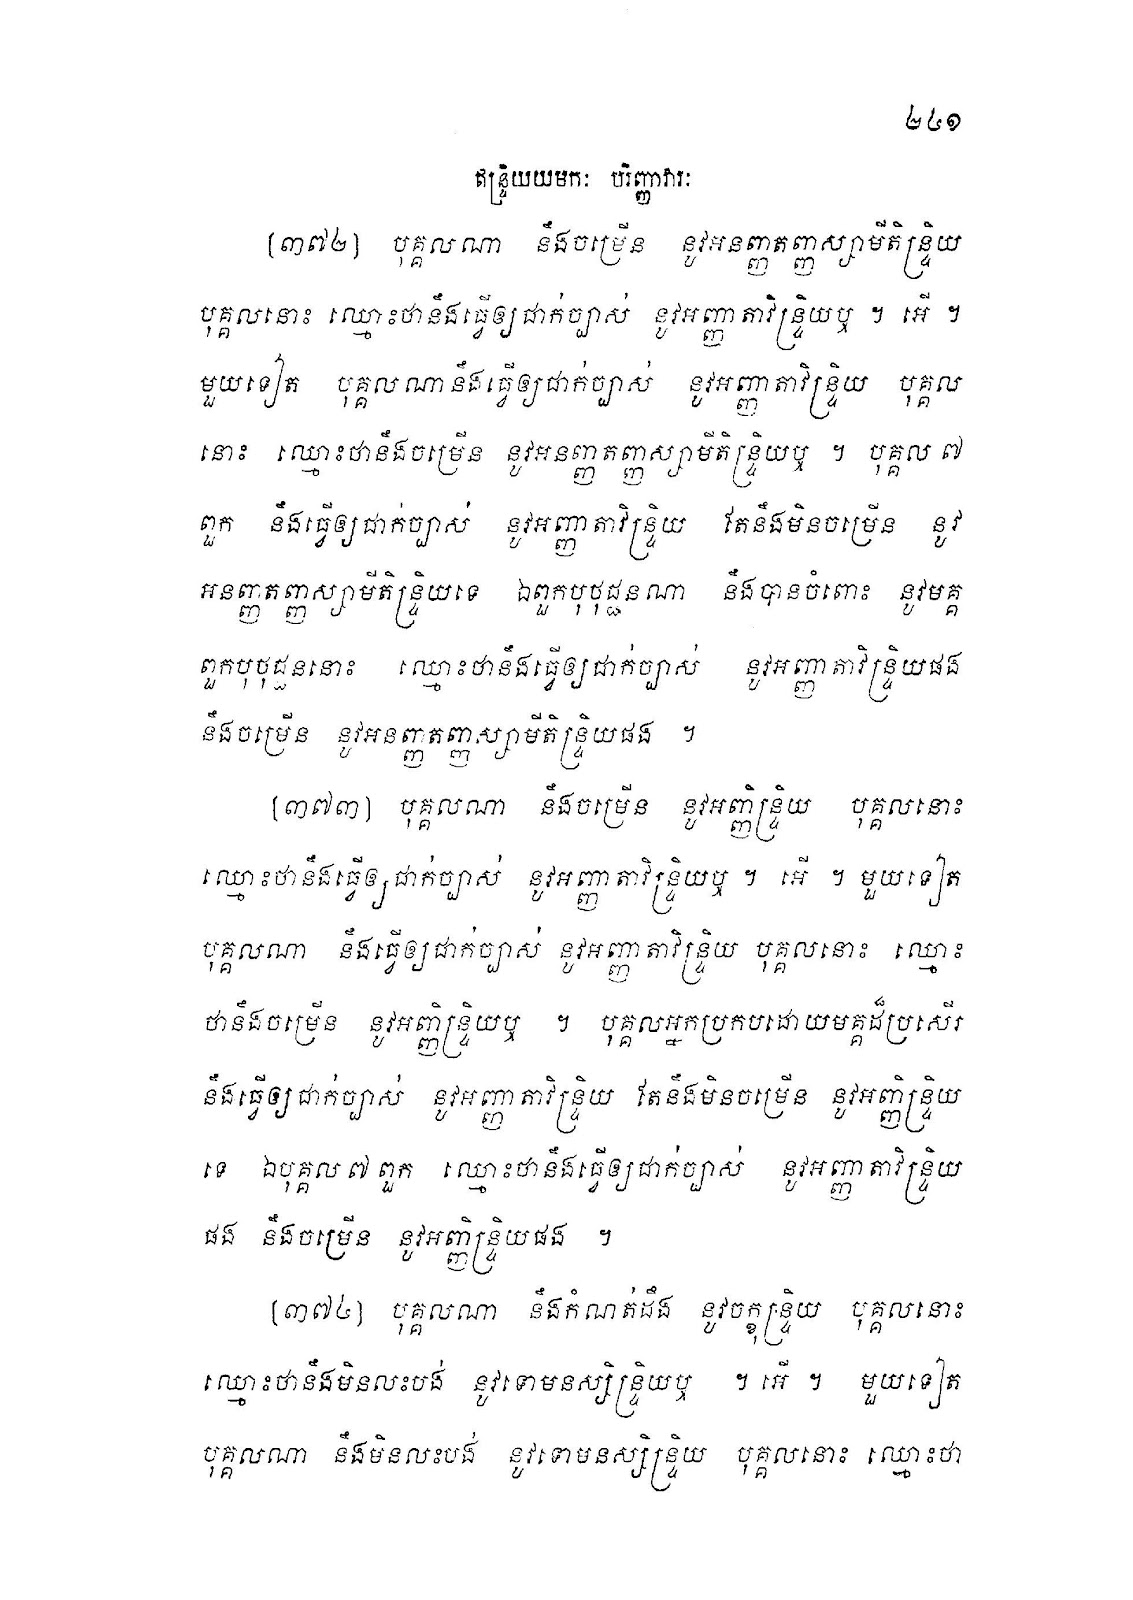 ២៤១
ឥន្ទ្រិយយមកៈ បរិញ្ញាវារៈ
(៣៧២) បុគ្គលណា នឹងចម្រើន នូវអនញ្ញតញ្ញស្សាមីតិន្ទ្រិយ
បុគ្គលនោះ ឈ្មោះថានឹងធ្វើឲ្យជាក់ច្បាស់ នូវអញ្ញាតាវិន្ទ្រិយឬ ។ អើ ។
មួយទៀត បុគ្គលណានឹងធ្វើឲ្យជាក់ច្បាស់ នូវអញ្ញាតាវិន្ទ្រិយ បុគ្គល
នោះ ឈ្មោះថានឹងចម្រើន នូវអនញ្ញតញ្ញស្សាមីតិន្ទ្រិយឬ ។ បុគ្គល ៧
ពួក នឹងធ្វើឲ្យជាក់ច្បាស់ នូវអញ្ញាតាវិន្ទ្រិយ តែនឹងមិនចម្រើន នូវ
អនញ្ញតញ្ញស្សាមីតិន្ទ្រិយទេ ឯពួកបុថុជ្ជនណា នឹងបានចំពោះ នូវមគ្គ
ពួកបុថុជ្ជននោះ ឈ្មោះថានឹងធ្វើឲ្យជាក់ច្បាស់ នូវអញ្ញាតាវិន្ទ្រិយផង
នឹងចម្រើន នូវអនញ្ញតញ្ញស្សាមីតិន្ទ្រិយផង ។
(៣៧៣) បុគ្គលណា នឹងចម្រើន នូវអញ្ញិន្ទ្រិយ បុគ្គលនោះ
ឈ្មោះថានឹងធ្វើឲ្យជាក់ច្បាស់ នូវអញ្ញាតាវិន្ទ្រិយឬ ។ អើ ។ មួយទៀត
បុគ្គលណា នឹងធ្វើឲ្យជាក់ច្បាស់ នូវអញ្ញាតាវិន្ទ្រិយ បុគ្គលនោះ ឈ្មោះ
ថានឹងចម្រើន នូវអញ្ញិន្ទ្រិយឬ ។ បុគ្គលអ្នកប្រកបដោយមគ្គដ៏ប្រសើរ
នឹងធ្វើឲ្យជាក់ច្បាស់ នូវអញ្ញាតាវិន្ទ្រិយ តែនឹងមិនចម្រើន នូវអញ្ញិន្ទ្រិយ
ទេ ឯបុគ្គល ៧ ពួក ឈ្មោះថានឹងធ្វើឲ្យជាក់ច្បាស់ នូវអញ្ញាតាវិន្ទ្រិយ
ផង នឹងចម្រើន នូវអញ្ញិន្ទ្រិយផង ។
(៣៧៤) បុគ្គលណា នឹងកំណត់ដឹង នូវចក្ខុន្ទ្រិយ បុគ្គលនោះ
ឈ្មោះថានឹងមិនលះបង់ នូវទោមនស្សិន្ទ្រិយឬ ។ អើ ។ មួយទៀត
បុគ្គលណា នឹងមិនលះបង់ នូវទោមនស្សិន្ទ្រិយ បុគ្គលនោះ ឈ្មោះថា